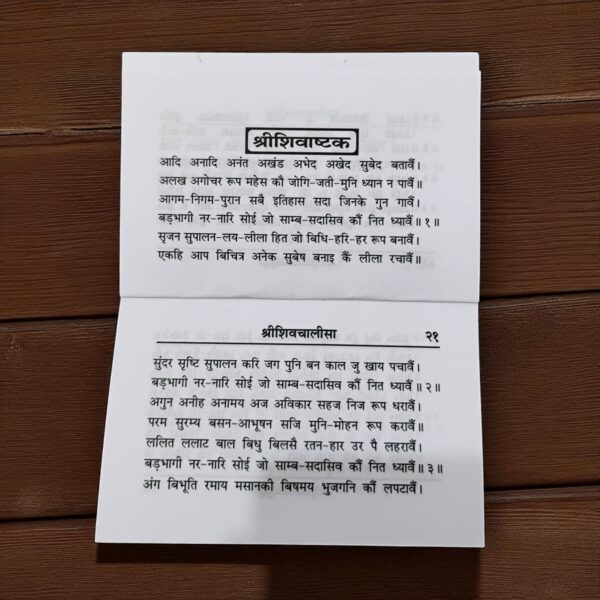 श्रीशिवाष्टक
आदि अनादि अनंत अखंड अभेद अखेद सुबेद बतावैं।
अलख अगोचर रूप महेस कौ जोगि-जती-मुनि ध्यान न पावैं॥
आगम-निगम-पुरान सबै इतिहास सदा जिनके गुन गावैं।
बड़भागी नर-नारि सोई जो साम्ब-सदासिव कौं नित ध्यावैं॥१॥
सृजन सुपालन-लय-लीला हित जो बिधि-हरि-हर रूप बनावैं।
एकहि आप बिचित्र अनेक सुबेष बनाइ कैं लीला रचावैं॥
श्रीशिवचालीसा २१
सुंदर सृष्टि सुपालन करि जग पुनि बन काल जु खाय पचावैं।
बड़भागी नर-नारि सोई जो साम्ब-सदासिव कौं नित ध्यावैं॥२॥
अगुन अनीह अनामय अज अविकार सहज निज रूप धरावैं।
परम सुरम्य बसन-आभूषन सजि मुनि-मोहन रूप करावैं॥
ललित ललाट बाल बिधु बिलसै रतन-हार उर पै लहरावैं।
बड़भागी नर-नारि सोई जो साम्ब-सदासिव कौं नित ध्यावैं॥३॥
अंग बिभूति रमाय मसानकी बिषमय भुजगनि कौं लपटावैं।